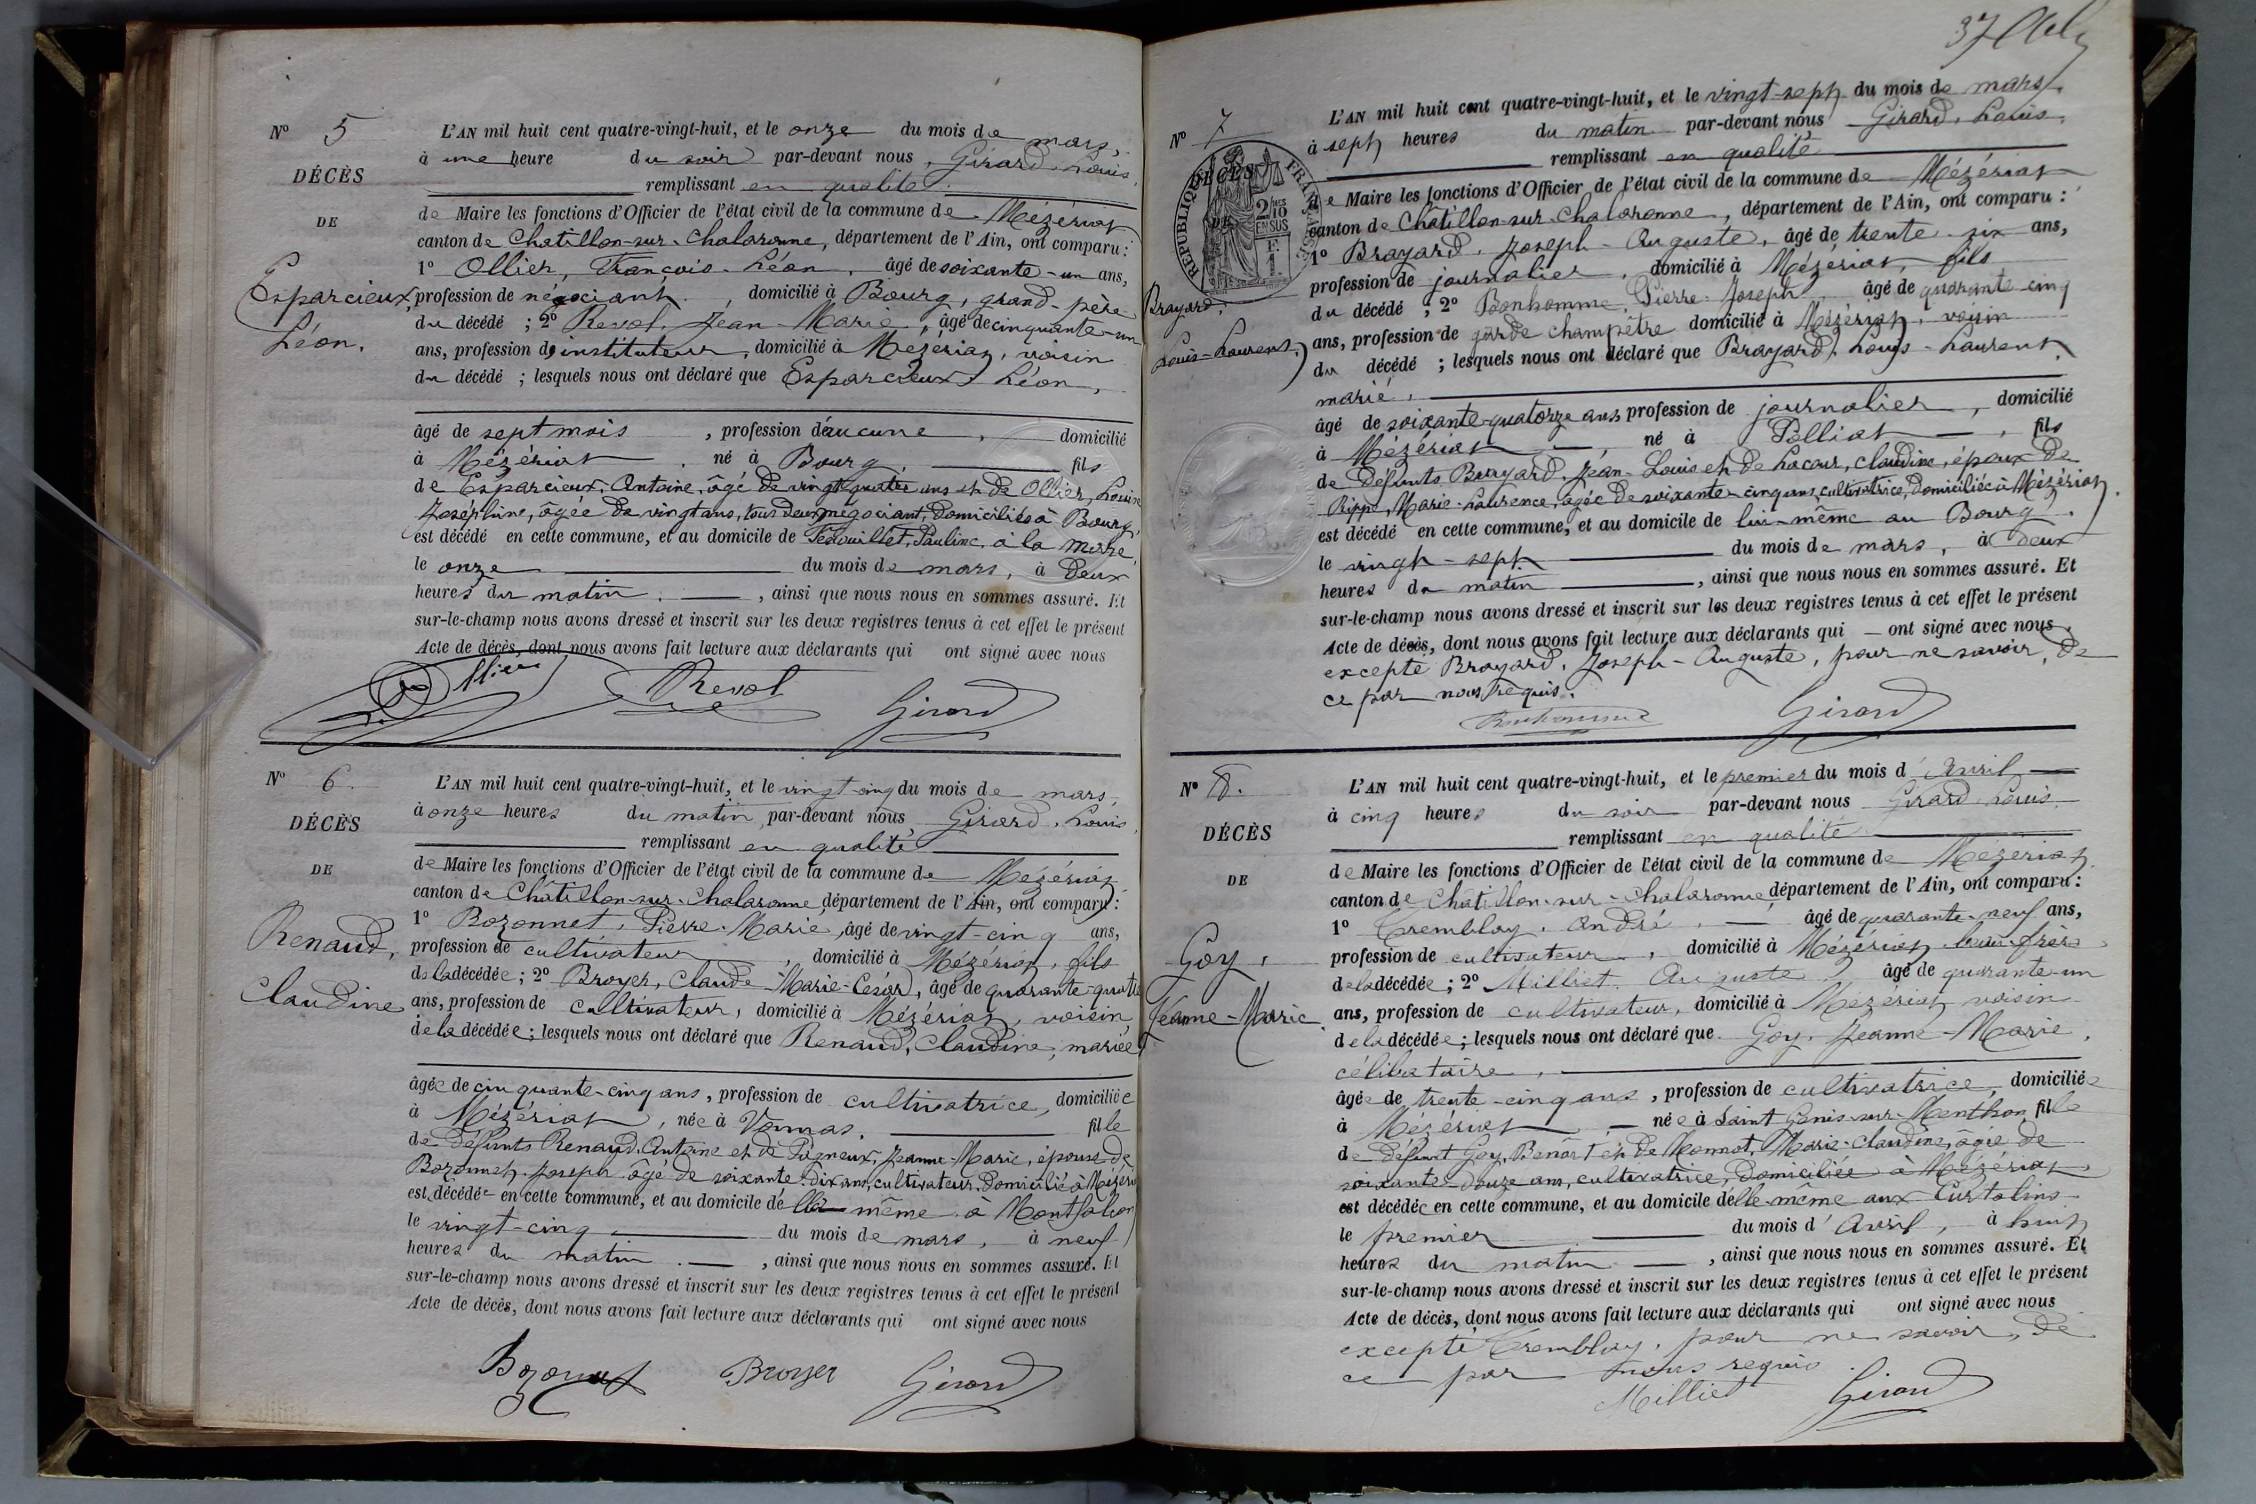 N° 5
DÉCÈS
DE
Esparcieux,
Léon.
L'AN mil huit cent quatre-vingt-huit, et le onze du mois de mars,
à une heure du soir par-devant nous, Girard, Louis,
remplissant en qualité
de Maire les fonctions d'Officier de l'état civil de la commune de Mézériat
canton de Chatillon-sur-Chalaronne, département de l'Ain, ont comparu :
1° Ollier, François-Léon, âgé de soixante-un ans,
profession de négociant, domicilié à Bourg, grand-père
du décédé ; 2° Revol, Jean-Marie, âgé de cinquante-un
ans, profession d'instituteur, domicilié à Mézériat, voisin
du décédé ; lesquels nous ont déclaré que Esparcieux, Léon,
âgé de sept mois, profession d'aucune, domicilié
à Mézériat, né à Bourg, fils
de Esparcieux, Antoine, âgé de vingt-quatre ans et de Ollier, Louise
Joséphine, âgée de vingt ans, tous deux négociant, domiciliés à Bourg,
est décédé en cette commune, et au domicile de Pauline, à la More
le onze du mois de mars, à deux
heures du matin, ainsi que nous nous en sommes assuré. Et
sur-le-champ nous avons dressé et inscrit sur les deux registres tenus à cet effet le présent
Acte de décès, dont nous avons fait lecture aux déclarants qui ont signé avec nous
Ollier Revol Girard
N° 6.
DÉCÈS
DE
Renaud,
Claudine
L'AN mil huit cent quatre-vingt-huit, et le vingt-cinq du mois de mars,
à onze heures du matin par-devant nous, Girard, Louis,
remplissant en qualité
de Maire les fonctions d'Officier de l'état civil de la commune de Mézériat,
canton de Châtillon-sur-Chalaronne, département de l'Ain, ont comparu :
1° Bozonnet, Pierre-Marie, âgé de vingt-cinq ans,
profession de cultivateur, domicilié à Mézériat, fils
de la décédée ; 2° Broyer, Claude-Marie-César, âgé de quarante-quatre
ans, profession de cultivateur, domicilié à Mézériat, voisin
de la décédée ; lesquels nous ont déclaré que Renaud, Claudine, mariée
âgée de cinquante-cinq ans, profession de cultivatrice, domiciliée
à Mézériat, née à Vonnas, fille
de défunts Renaud, Antoine et de Pugneux, Jeanne-Marie, épouse de
Bozonnet, Joseph, âgé de soixante-dix ans, cultivateur, domicilié à Mézériat
est décédée en cette commune, et au domicile d'elle-même à Montfalcon
le vingt-cinq du mois de mars, à neuf
heures du matin, ainsi que nous nous en sommes assuré. Et
sur-le-champ nous avons dressé et inscrit sur les deux registres tenus à cet effet le présent
Acte de décès, dont nous avons fait lecture aux déclarants qui ont signé avec nous
Bozonnet Broyer Girard
37
N° 7
DÉCÈS
DE
RÉPUBLIQUE FRANÇAISE
2/10 EN SUS
Brayard,
Louis-Laurent.
L'AN mil huit cent quatre-vingt-huit, et le vingt-sept du mois de mars,
à sept heures du matin par-devant nous Girard, Louis,
remplissant en qualité
de Maire les fonctions d'Officier de l'état civil de la commune de Mézériat
canton de Châtillon-sur-Chalaronne, département de l'Ain, ont comparu :
1° Brayard, Joseph-Auguste, âgé de trente-six ans,
profession de journalier, domicilié à Mézériat, fils
du décédé ; 2° Bonhomme, Pierre-Joseph, âgé de quarante-cinq
ans, profession de garde champêtre domicilié à Mézériat, voisin
du décédé ; lesquels nous ont déclaré que Brayard, Louis-Laurent,
marié,
âgé de soixante-quatorze ans, profession de journalier, domicilié
à Mézériat, né à Polliat, fils
de défunts Brayard, Jean-Louis et de Lacour, Claudine, époux de
Ripp, Marie-Laurence, âgée de soixante-cinq ans, cultivatrice, domiciliée à Mézériat,
est décédé en cette commune, et au domicile de lui-même au Bourg,
le vingt-sept du mois de mars, à deux
heures du matin, ainsi que nous nous en sommes assuré. Et
sur-le-champ nous avons dressé et inscrit sur les deux registres tenus à cet effet le présent
Acte de décès, dont nous avons fait lecture aux déclarants qui ont signé avec nous,
excepté Brayard, Joseph-Auguste, pour ne savoir, de
ce par nous requis.
Bonhomme Girard
N° 8.
DÉCÈS
DE
Goy,
Jeanne-Marie
L'AN mil huit cent quatre-vingt-huit, et le premier du mois d'Avril
à cinq heures du soir par-devant nous Girard, Louis
remplissant en qualité
de Maire les fonctions d'Officier de l'état civil de la commune de Mézériat,
canton de Châtillon-sur-Chalaronne, département de l'Ain, ont comparu :
1° Tremblay, André, âgé de quarante-neuf ans,
profession de cultivateur, domicilié à Mézériat, beau-frère
de la décédée ; 2° Milliet, Auguste, âgé de quarante-un
ans, profession de cultivateur, domicilié à Mézériat, voisin
de la décédée ; lesquels nous ont déclaré que Goy, Jeanne-Marie,
célibataire,
âgée de trente-cinq ans, profession de cultivatrice, domiciliée
à Mézériat, née à Saint Genis-sur-Menthon fille
de défunt Goy, Benoît et de Monnot, Marie-Claudine, âgée de
soixante-douze ans, cultivatrice, domiciliée à Mézériat,
est décédée en cette commune, et au domicile d'elle-même aux Curtalins
le premier du mois d'Avril, à huit
heures du matin, ainsi que nous nous en sommes assuré. Et
sur-le-champ nous avons dressé et inscrit sur les deux registres tenus à cet effet le présent
Acte de décès, dont nous avons fait lecture aux déclarants qui ont signé avec nous
excepté Tremblay, pour ne savoir, de
ce par nous requis.
Milliet Girard